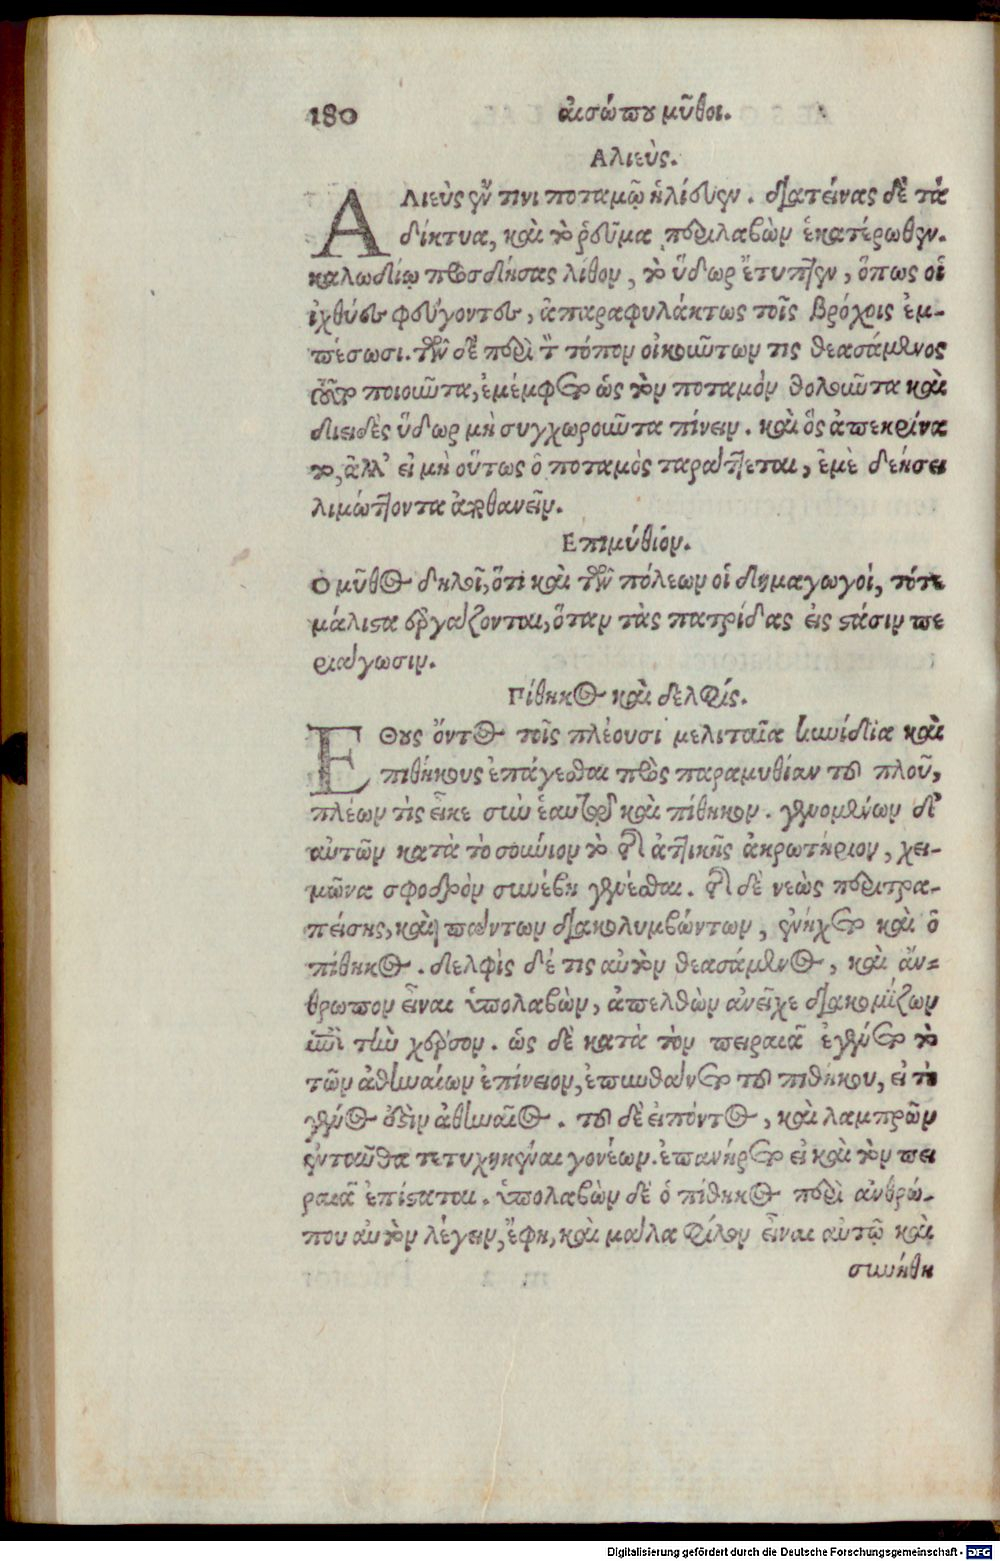 180 αἰσώπου μῦθοι.
Αλιεὺς.
ΑΛιεὺς ἔν τινι ποταμῷ ἡλίευεν. διατείνας δὲ τὰ
δίκτυα, καὶ τὸ ῥεῦμα περιλαβὼν ἑκατέρωθεν.
καλωδίῳ προσδήσας λίθον, τὸ ὕδωρ ἔτυπτεν, ὅπως οἱ
ἰχθύες φεύγοντες, ἀπαραφυλάκτως τοῖς βρόχοις ἐμ-
πέσωσι. τῶν δὲ περὶ τὸν τόπον οἰκούντων τις θεασάμενος
τοῦτο ποιοῦντα, ἐμέμφετο ὡς τὸν ποταμὸν θολοῦντα καὶ
διειδὲς ὕδωρ μὴ συγχωροῦντα πίνειν. καὶ ὃς ἀπεκρίνα
το, ἀλλ' εἰ μὴ οὕτως ὁ ποταμὸς ταράττεται, ἐμὲ δεήσει
λιμώττοντα ἀποθανεῖν.
Επιμύθιον.
Ο μῦθος δηλοῖ, ὅτι καὶ τῶν πόλεων οἱ δημαγωγοί, τότε
μάλιστα ἐργάζονται, ὅταν τὰς πατρίδας εἰς στάσιν πε
ριάγωσιν.
Πίθηκος καὶ δελφίς.
ΕΘους ὄντος τοῖς πλέουσι μελιταῖα κυνίδια καὶ
πιθήκους ἐπάγεσθαι πρὸς παραμυθίαν τοῦ πλοῦ,
πλέων τὶς εἶχε σὺν ἑαυτῷ καὶ πίθηκον. γενομένων δὲ
αὐτῶν κατὰ τὸ σούνιον τὸ τῆς ἀττικῆς ἀκρωτήριον, χει-
μῶνα σφοδρὸν συνέβη γενέσθαι. τῆς δὲ νεὼς περιτρα-
πείσης, καὶ πάντων διακολυμβώντων, ἐνήχετο καὶ ὁ
πίθηκος. δελφὶς δέ τις αὐτὸν θεασάμενος, καὶ ἄν-
θρωπον εἶναι ὑπολαβὼν, ἀπελθὼν ἀνεῖχε διακομίζων
ἐπὶ τὴν χέρσον. ὡς δὲ κατὰ τὸν πειραιᾶ ἐγένετο τὸ
τῶν ἀθηναίων ἐπίνειον, ἐπυνθάνετο τοῦ πιθήκου, εἰ τὸ
γένος ἐστὶν ἀθηναῖος. τοῦ δὲ εἰπόντος, καὶ λαμπρῶν
ἐνταῦθα τετυχηκέναι γονέων. ἐπανήρετο εἰ καὶ τὸν πει
ραιᾶ ἐπίσταται. ὑπολαβὼν δὲ ὁ πίθηκος περὶ ἀνθρώ-
που αὐτὸν λέγειν, ἔφη, καὶ μάλα φίλον εἶναι αὐτῷ καὶ
συνήθη
Digitalisierung gefördert durch die Deutsche Forschungsgemeinschaft - DFG